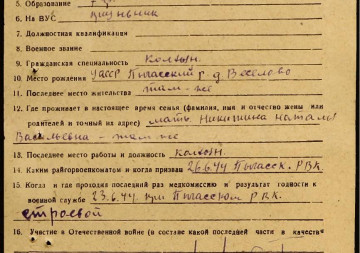 5. Образование 7 кл
6. На ВУС призывник
7. Должностная квалификация
8. Военное звание
9. Гражданская специальность колхозн.
10. Место рождения УАССР Пыгасский р-д Веселово
11. Последнее место жительства там-же
12. Где проживает в настоящее время семья (фамилия, имя и отчество жены или
родителей и точный их адрес) мать Никитина Наталь
Васильевна - там же
13. Последнее место работы и должность колхозн.
14. Каким райгорвоенкоматом и когда призван 26.6.44 Пыгасск. РВК
15. Когда и где проходил последний раз медкомиссию и результат годности к
военной службе 23.6.44 при Пыгасском РВК.
строевой
16. Участие в Отечественной войне (в составе какой последней части и качестве